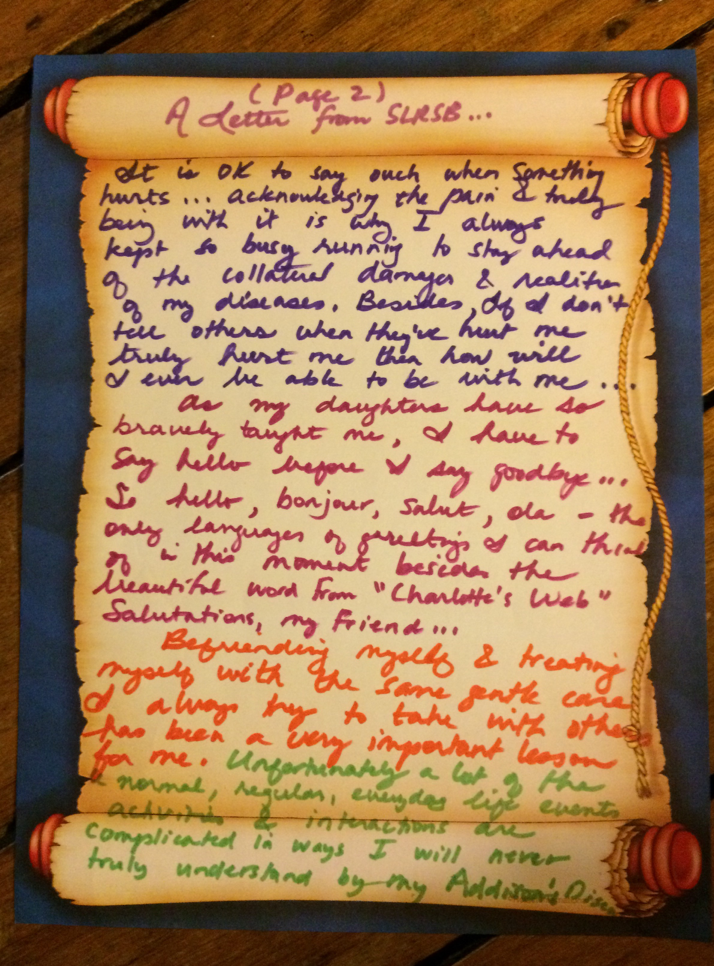 (Page 2)
A Letter from SLRSB...
It is OK to say ouch when something
hurts... acknowledging the pain & truly
being with it is why I always
kept so busy running to stay ahead
of the collateral damages & realities
of my diseases. Besides, If I don't
tell others when they've hurt me
truly hurt me then how will
I ever be able to be with me...
As my daughters have so
bravely taught me, I have to
say hello before I say goodbye...
So hello, bonjour, salut, ola - the
only languages of greetings I can think
of in this moment besides the
beautiful word from "Charlotte's Web"
Salutations, my Friend...
Befriending myself & treating
myself with the same gentle care
I always try to take with others
has been a very important lesson
for me. Unfortunately a lot of the
normal, regular, everyday life events
activities & interactions are
complicated in ways I will never
truly understand by my Addison's Disease